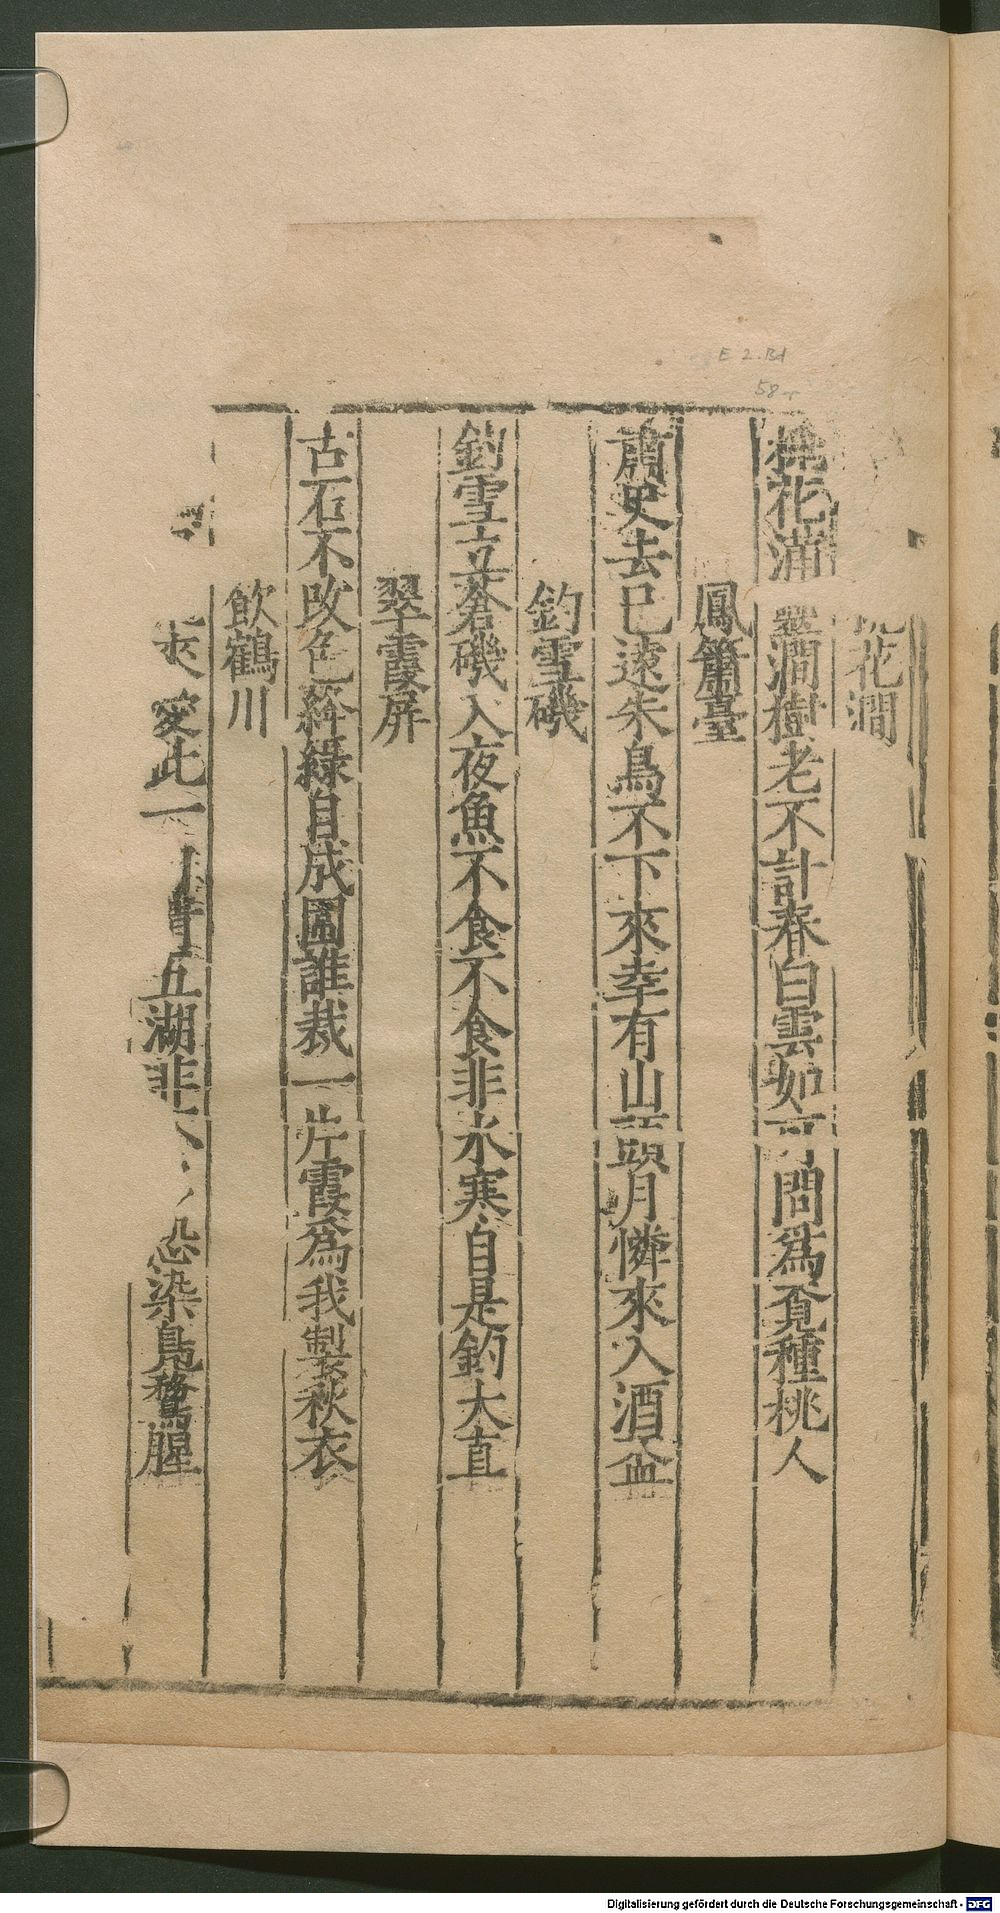 花澗
桃花滿澗樹老不計春白雲如可問爲覔種桃人
鳳簫臺
蕭史去已遠朱鳥不下來幸有山頭月憐來入酒盃
釣雪磯
釣雪立蒼磯入夜魚不食不食非水寒自是釣太直
翠霞屏
古石不改色絳綠自成圖誰裁一片霞爲我製秋衣
飲鶴川
愛此一五湖非恐染鳧鶩腥
E 2. Bd
58
Digitalisierung gefördert durch die Deutsche Forschungsgemeinschaft - DFG